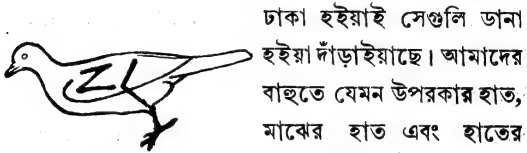 ঢাকা হইয়াই সেগুলি ডানা
হইয়া দাঁড়াইয়াছে। আমাদের
বাহুতে যেমন উপরকার হাত,
মাঝের হাত এবং হাতের